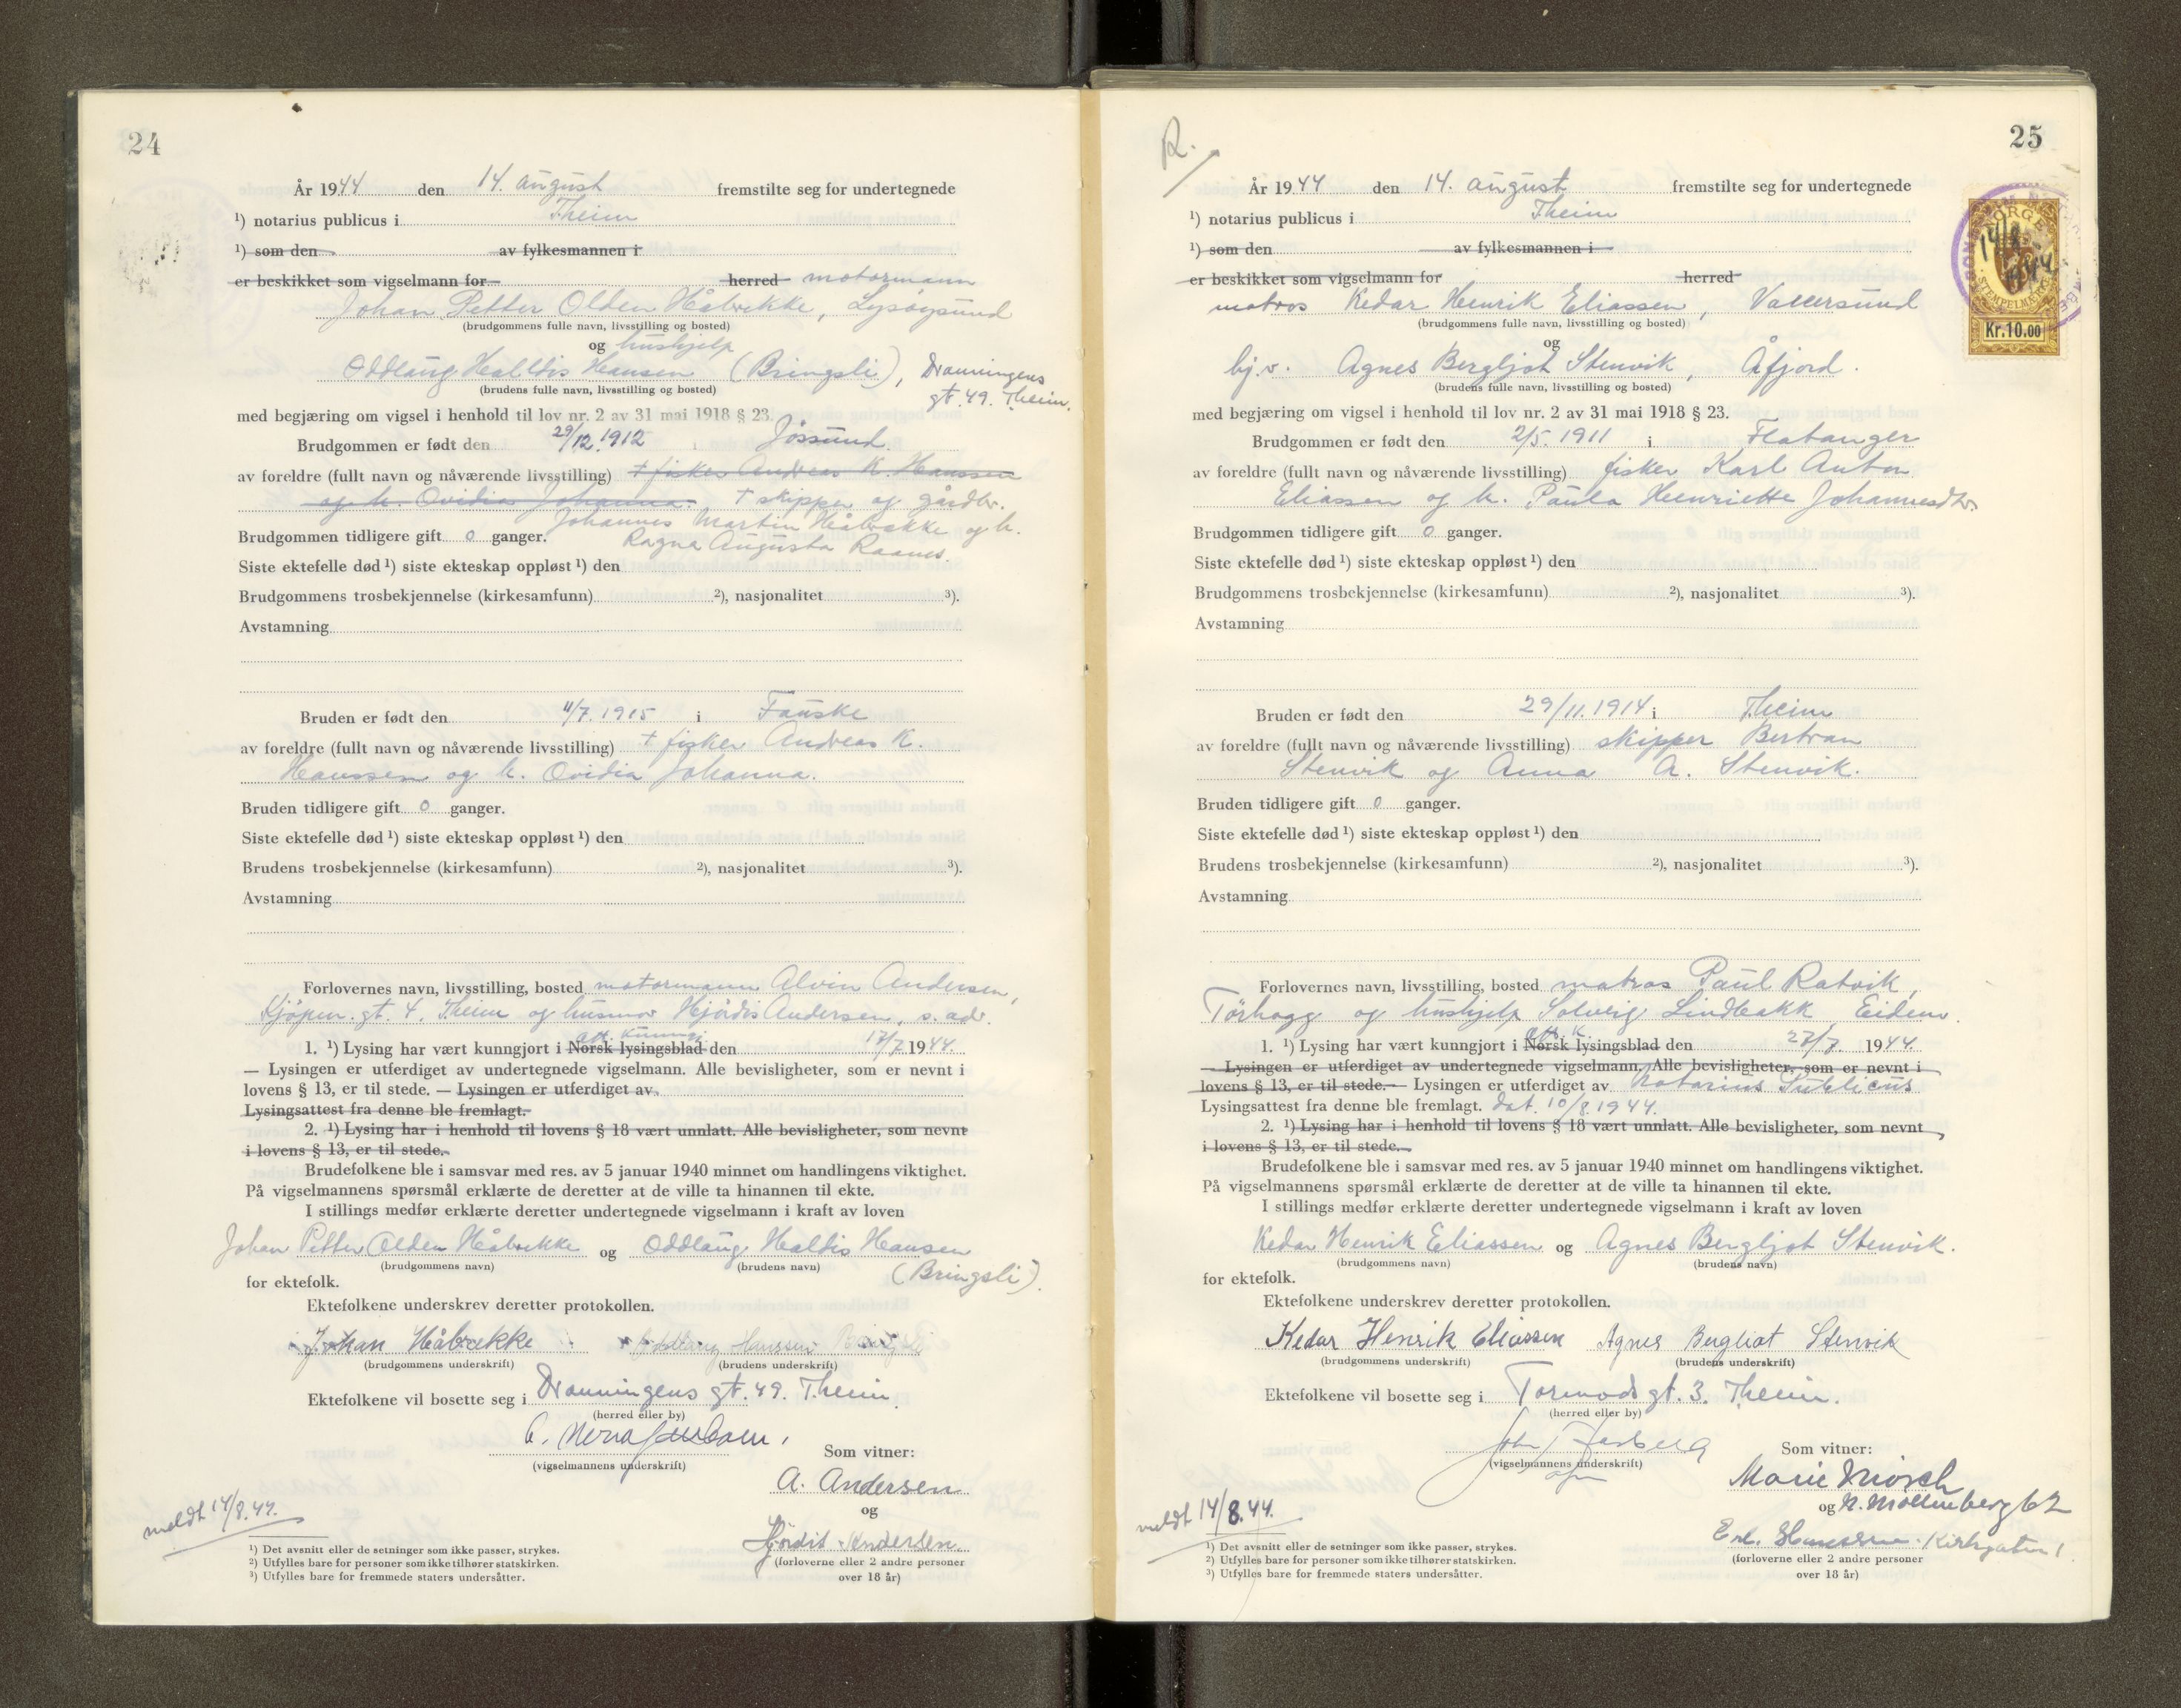 24
År 1944 den 14. august fremstilte seg for undertegnede
¹) notarius publicus i Theim
¹) som den av fylkesmannen i
er beskikket som vigselmann for herred motormann
Johan Petter Olden Håbrekke, Lysøysund
(brudgommens fulle navn, livsstilling og bosted)
og hushjelp
Oddlaug Halldis Hansen (Bringsli), Dronningens
gt. 49. Theim.
(brudens fulle navn, livsstilling og bosted)
med begjæring om vigsel i henhold til lov nr. 2 av 31 mai 1918 § 23.
Brudgommen er født den 29/12.1912 i Jøssund.
av foreldre (fullt navn og nåværende livsstilling) + fisker Andreas K. Hanssen
og h. Ovidia Johanna. + skipper og gårdbr.
Johannes Martin Håbrekke og h.
Brudgommen tidligere gift 0 ganger. Ragna Augusta Raanes
Siste ektefelle død ¹) siste ekteskap oppløst ¹) den
Brudgommens trosbekjennelse (kirkesamfunn) ²), nasjonalitet ³).
Avstamning
Bruden er født den 11/7.1915 i Fauske
av foreldre (fullt navn og nåværende livsstilling) + fisker Andreas K.
Hanssen og h. Ovidia Johanna.
Bruden tidligere gift 0 ganger.
Siste ektefelle død ¹) siste ekteskap oppløst ¹) den
Brudens trosbekjennelse (kirkesamfunn) ²), nasjonalitet ³).
Avstamning
Forlovernes navn, livsstilling, bosted motormann Alvin Andersen,
Kjøpm. gt. 4. Theim og husmor Hjördis Andersen, s. adr.
1. ¹) Lysing har vært kunngjort i Norsk lysingsblad den 17/7 1944.
— Lysingen er utferdiget av undertegnede vigselmann. Alle bevisligheter, som er nevnt i
lovens § 13, er til stede. — Lysingen er utferdiget av
Lysingsattest fra denne ble fremlagt.
2. ¹) Lysing har i henhold til lovens § 18 vært unnlatt. Alle bevisligheter, som nevnt
i lovens § 13, er til stede.
Brudefolkene ble i samsvar med res. av 5 januar 1940 minnet om handlingens viktighet.
På vigselmannens spørsmål erklærte de deretter at de ville ta hinannen til ekte.
I stillings medfør erklærte deretter undertegnede vigselmann i kraft av loven
Johan Petter Olden Håbrekke og Oddlaug Haldis Hansen
(brudgommens navn) (brudens navn) (Bringsli).
for ektefolk.
Ektefolkene underskrev deretter protokollen.
Johan Håbrekke Oddlaug Hanssen Bringsli
(brudgommens underskrift) (brudens underskrift)
Ektefolkene vil bosette seg i Dronningens gt. 49. Theim
(herred eller by)
(vigselmannens underskrift)
Som vitner:
A. Andersen
og
Hjördis Andersen
(forloverne eller 2 andre personer
over 18 år)
meldt 14/8.44.
¹) Det avsnitt eller de setninger som ikke passer, strykes.
²) Utfylles bare for personer som ikke tilhører statskirken.
³) Utfylles bare for fremmede staters undersåtter.
R.
25
NORGE
STEMPELMERKE
Kr.10.00
År 1944 den 14. august fremstilte seg for undertegnede
¹) notarius publicus i Theim
¹) som den av fylkesmannen i
er beskikket som vigselmann for herred
matros Kedar Henrik Eliassen, Vallersund
(brudgommens fulle navn, livsstilling og bosted)
og
hj.v. Agnes Bergljot Stenvik, Åfjord.
(brudens fulle navn, livsstilling og bosted)
med begjæring om vigsel i henhold til lov nr. 2 av 31 mai 1918 § 23.
Brudgommen er født den 2/5.1911 i Flatanger
av foreldre (fullt navn og nåværende livsstilling) fisker Karl Anton
Eliassen og h. Paula Henriette Johannesdtr.
Brudgommen tidligere gift 0 ganger.
Siste ektefelle død ¹) siste ekteskap oppløst ¹) den
Brudgommens trosbekjennelse (kirkesamfunn) ²), nasjonalitet ³).
Avstamning
Bruden er født den 29/11.1914 i Theim
av foreldre (fullt navn og nåværende livsstilling) skipper Bertran
Stenvik og Anna A. Stenvik.
Bruden tidligere gift 0 ganger.
Siste ektefelle død ¹) siste ekteskap oppløst ¹) den
Brudens trosbekjennelse (kirkesamfunn) ²), nasjonalitet ³).
Avstamning
Forlovernes navn, livsstilling, bosted matros Paul Ratvik,
Tørhogg og hushjelp Solveig Lindbakk Eidem.
1. ¹) Lysing har vært kunngjort i Norsk lysingsblad den 27/7. 1944.
— Lysingen er utferdiget av undertegnede vigselmann. Alle bevisligheter, som er nevnt i
lovens § 13, er til stede. — Lysingen er utferdiget av Notarius Publicus
Lysingsattest fra denne ble fremlagt. dat. 10/8.1944.
2. ¹) Lysing har i henhold til lovens § 18 vært unnlatt. Alle bevisligheter, som nevnt
i lovens § 13, er til stede.
Brudefolkene ble i samsvar med res. av 5 januar 1940 minnet om handlingens viktighet.
På vigselmannens spørsmål erklærte de deretter at de ville ta hinannen til ekte.
I stillings medfør erklærte deretter undertegnede vigselmann i kraft av loven
Kedar Henrik Eliassen og Agnes Bergljot Stenvik.
(brudgommens navn) (brudens navn)
for ektefolk.
Ektefolkene underskrev deretter protokollen.
Kedar Henrik Eliassen Agnes Bergliot Stenvik
(brudgommens underskrift) (brudens underskrift)
Ektefolkene vil bosette seg i Tormods gt. 3. Theim.
(herred eller by)
(vigselmannens underskrift)
Som vitner:
Marie Mørch
og N. Möllenberg 62
Erl. Hanssen. Kirkegaten 1
(forloverne eller 2 andre personer
over 18 år)
meldt 14/8.44.
¹) Det avsnitt eller de setninger som ikke passer, strykes.
²) Utfylles bare for personer som ikke tilhører statskirken.
³) Utfylles bare for fremmede staters undersåtter.